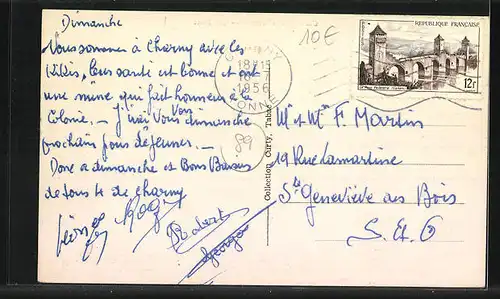 Dimanche
Nous sommes à Charny avec les
Kikis, leur santé est bonne et ont
une mine qui fait honneur à la
Colonie. — J'irai Vous Voir dimanche
prochain pour déjeuner. —
Donc a dimanche et Bons Baisers
de tous de Charny
Robert
Georges
CHARNY
18H15
1956
YONNE
10€
89
REPUBLIQUE FRANÇAISE
12F
Collection Curty, Tabac
Mr et Mme F. Martin
19 Rue Lamartine
Ste Geneviève des Bois
S. et O